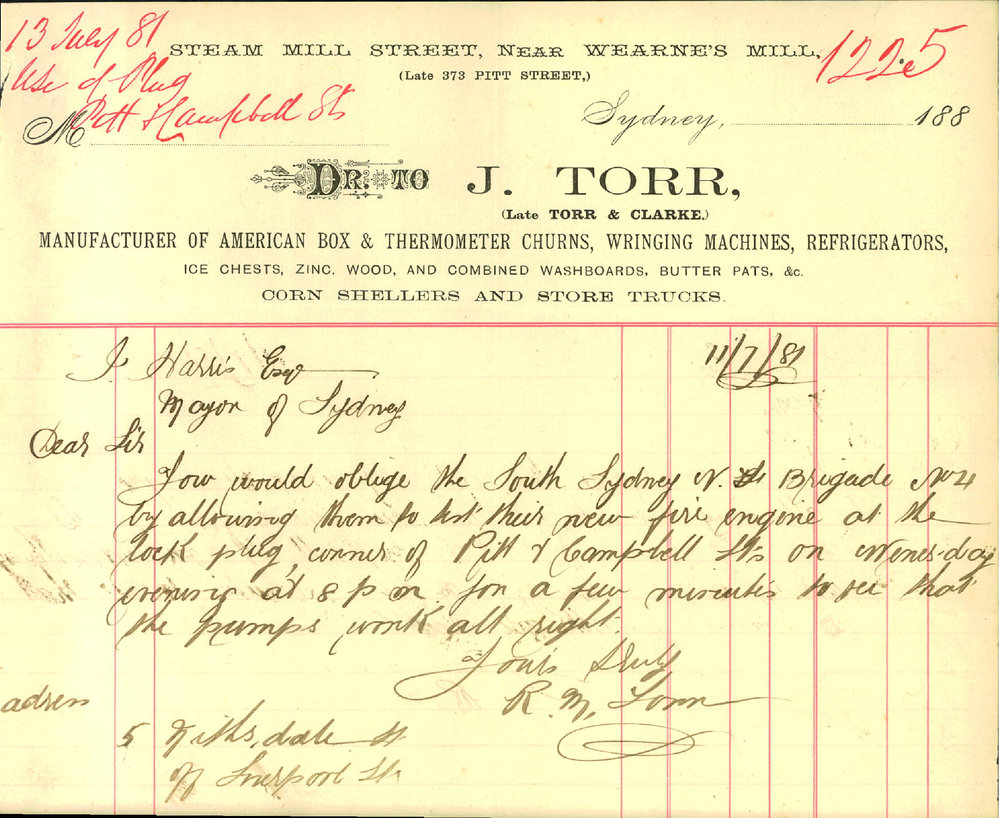 13 July 81
Use of Plug
Pitt & Campbell Sts
1225
STEAM MILL STREET, NEAR WEARNE'S MILL,
(Late 373 PITT STREET,)
M
Sydney, 188
DR. TO J. TORR,
(Late TORR & CLARKE.)
MANUFACTURER OF AMERICAN BOX & THERMOMETER CHURNS, WRINGING MACHINES, REFRIGERATORS,
ICE CHESTS, ZINC. WOOD, AND COMBINED WASHBOARDS, BUTTER PATS, &c.
CORN SHELLERS AND STORE TRUCKS.
11/7/81
J Harris Esqr
Mayor of Sydney
Dear Sir
You would oblige the South Sydney N. Brigade No 4
by allowing them to test their new fire engine at the
lock plug conner of Pitt & Campbell Sts on Wenesday
evening at 8 p m for a few minutes to see that
the pumps work all right.
Yours Truly
R. M. Torr
adress
5 Nithsdale St
off Liverpool St